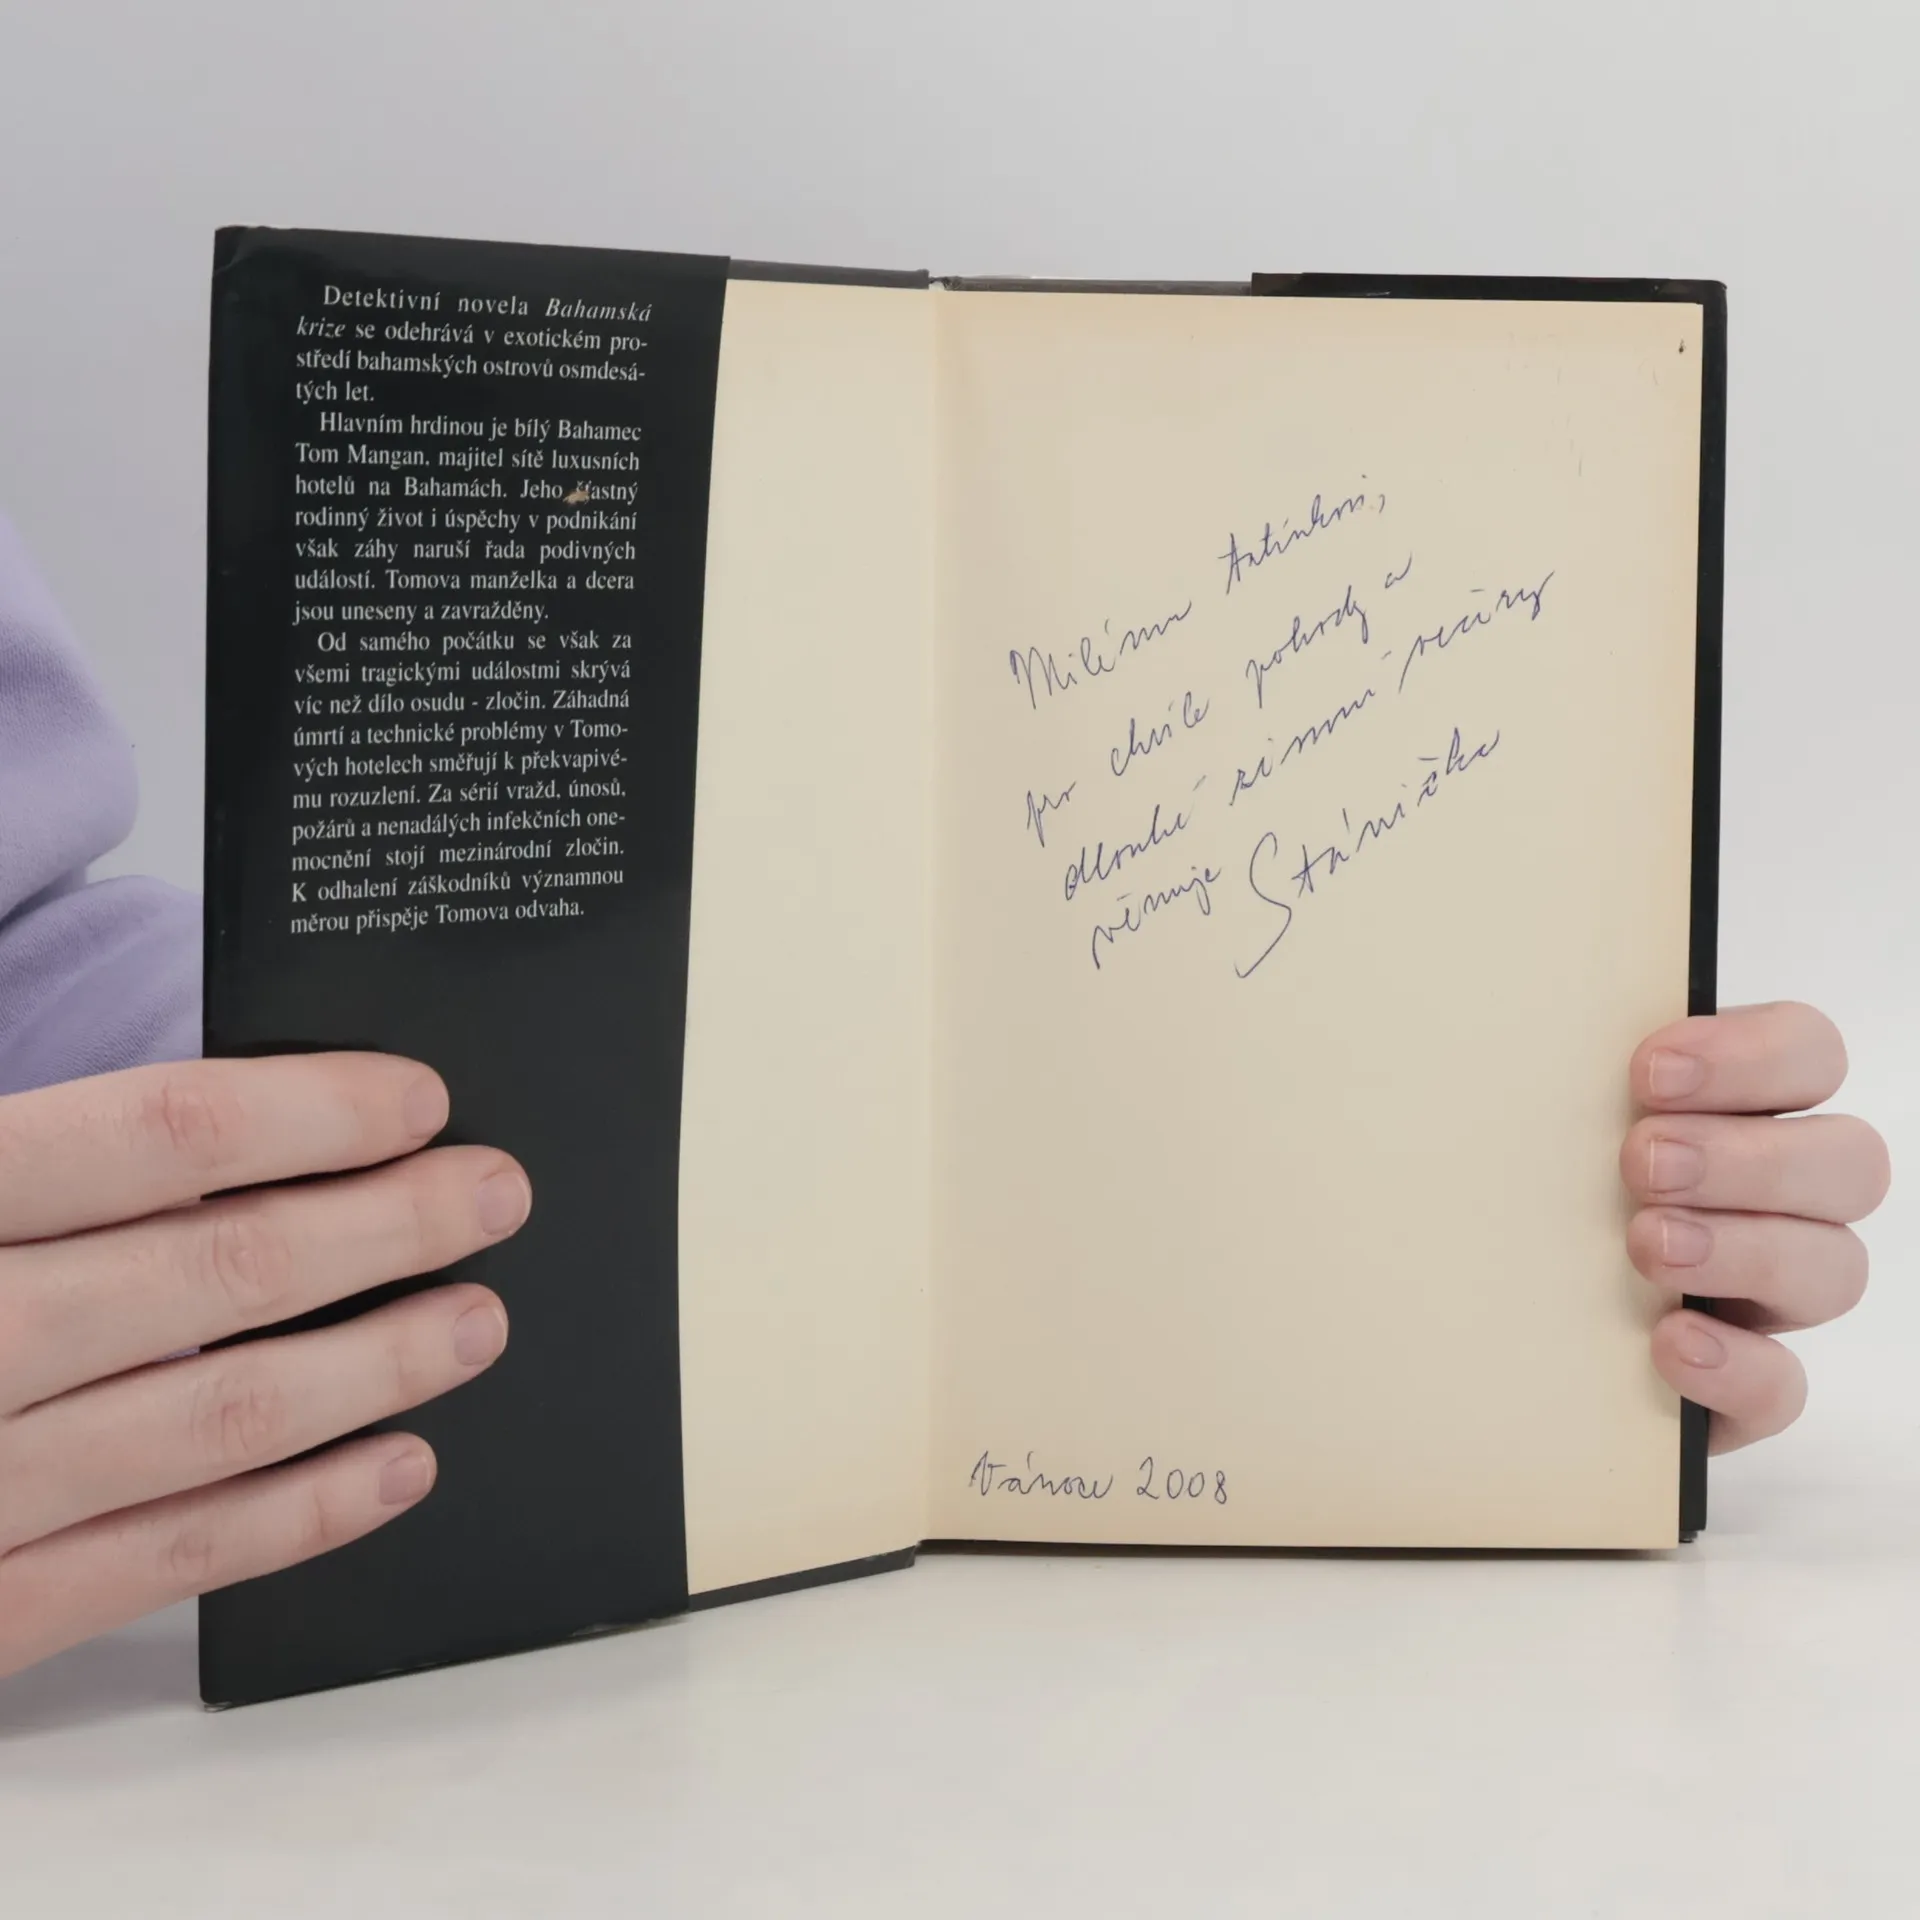 Detektivní novela Bahamská
krize se odehrává v exotickém pro-
středí bahamských ostrovů osmdesá-
tých let.
Hlavním hrdinou je bílý Bahamec
Tom Mangan, majitel sítě luxusních
hotelů na Bahamách. Jeho šťastný
rodinný život i úspěchy v podnikání
však záhy naruší řada podivných
událostí. Tomova manželka a dcera
jsou uneseny a zavražděny.
Od samého počátku se však za
všemi tragickými událostmi skrývá
víc než dílo osudu - zločin. Záhadná
úmrtí a technické problémy v Tomo-
vých hotelech směřují k překvapivé-
mu rozuzlení. Za sérií vražd, únosů,
požárů a nenadálých infekčních one-
mocnění stojí mezinárodní zločin.
K odhalení záškodníků významnou
měrou přispěje Tomova odvaha.
Milému
pro chvíle pohody a
dlouhé zimní večery
věnuje Stánička
Vánoce 2008